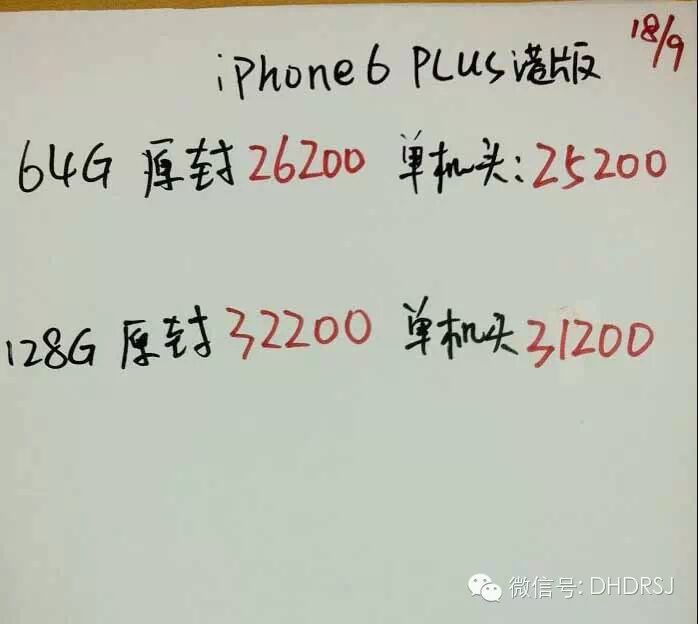 18/9
iPhone6 PLUS港版
64G 原封26200 单机头:25200
128G 原封32200 单机头31200
微信号: DHDRSJ